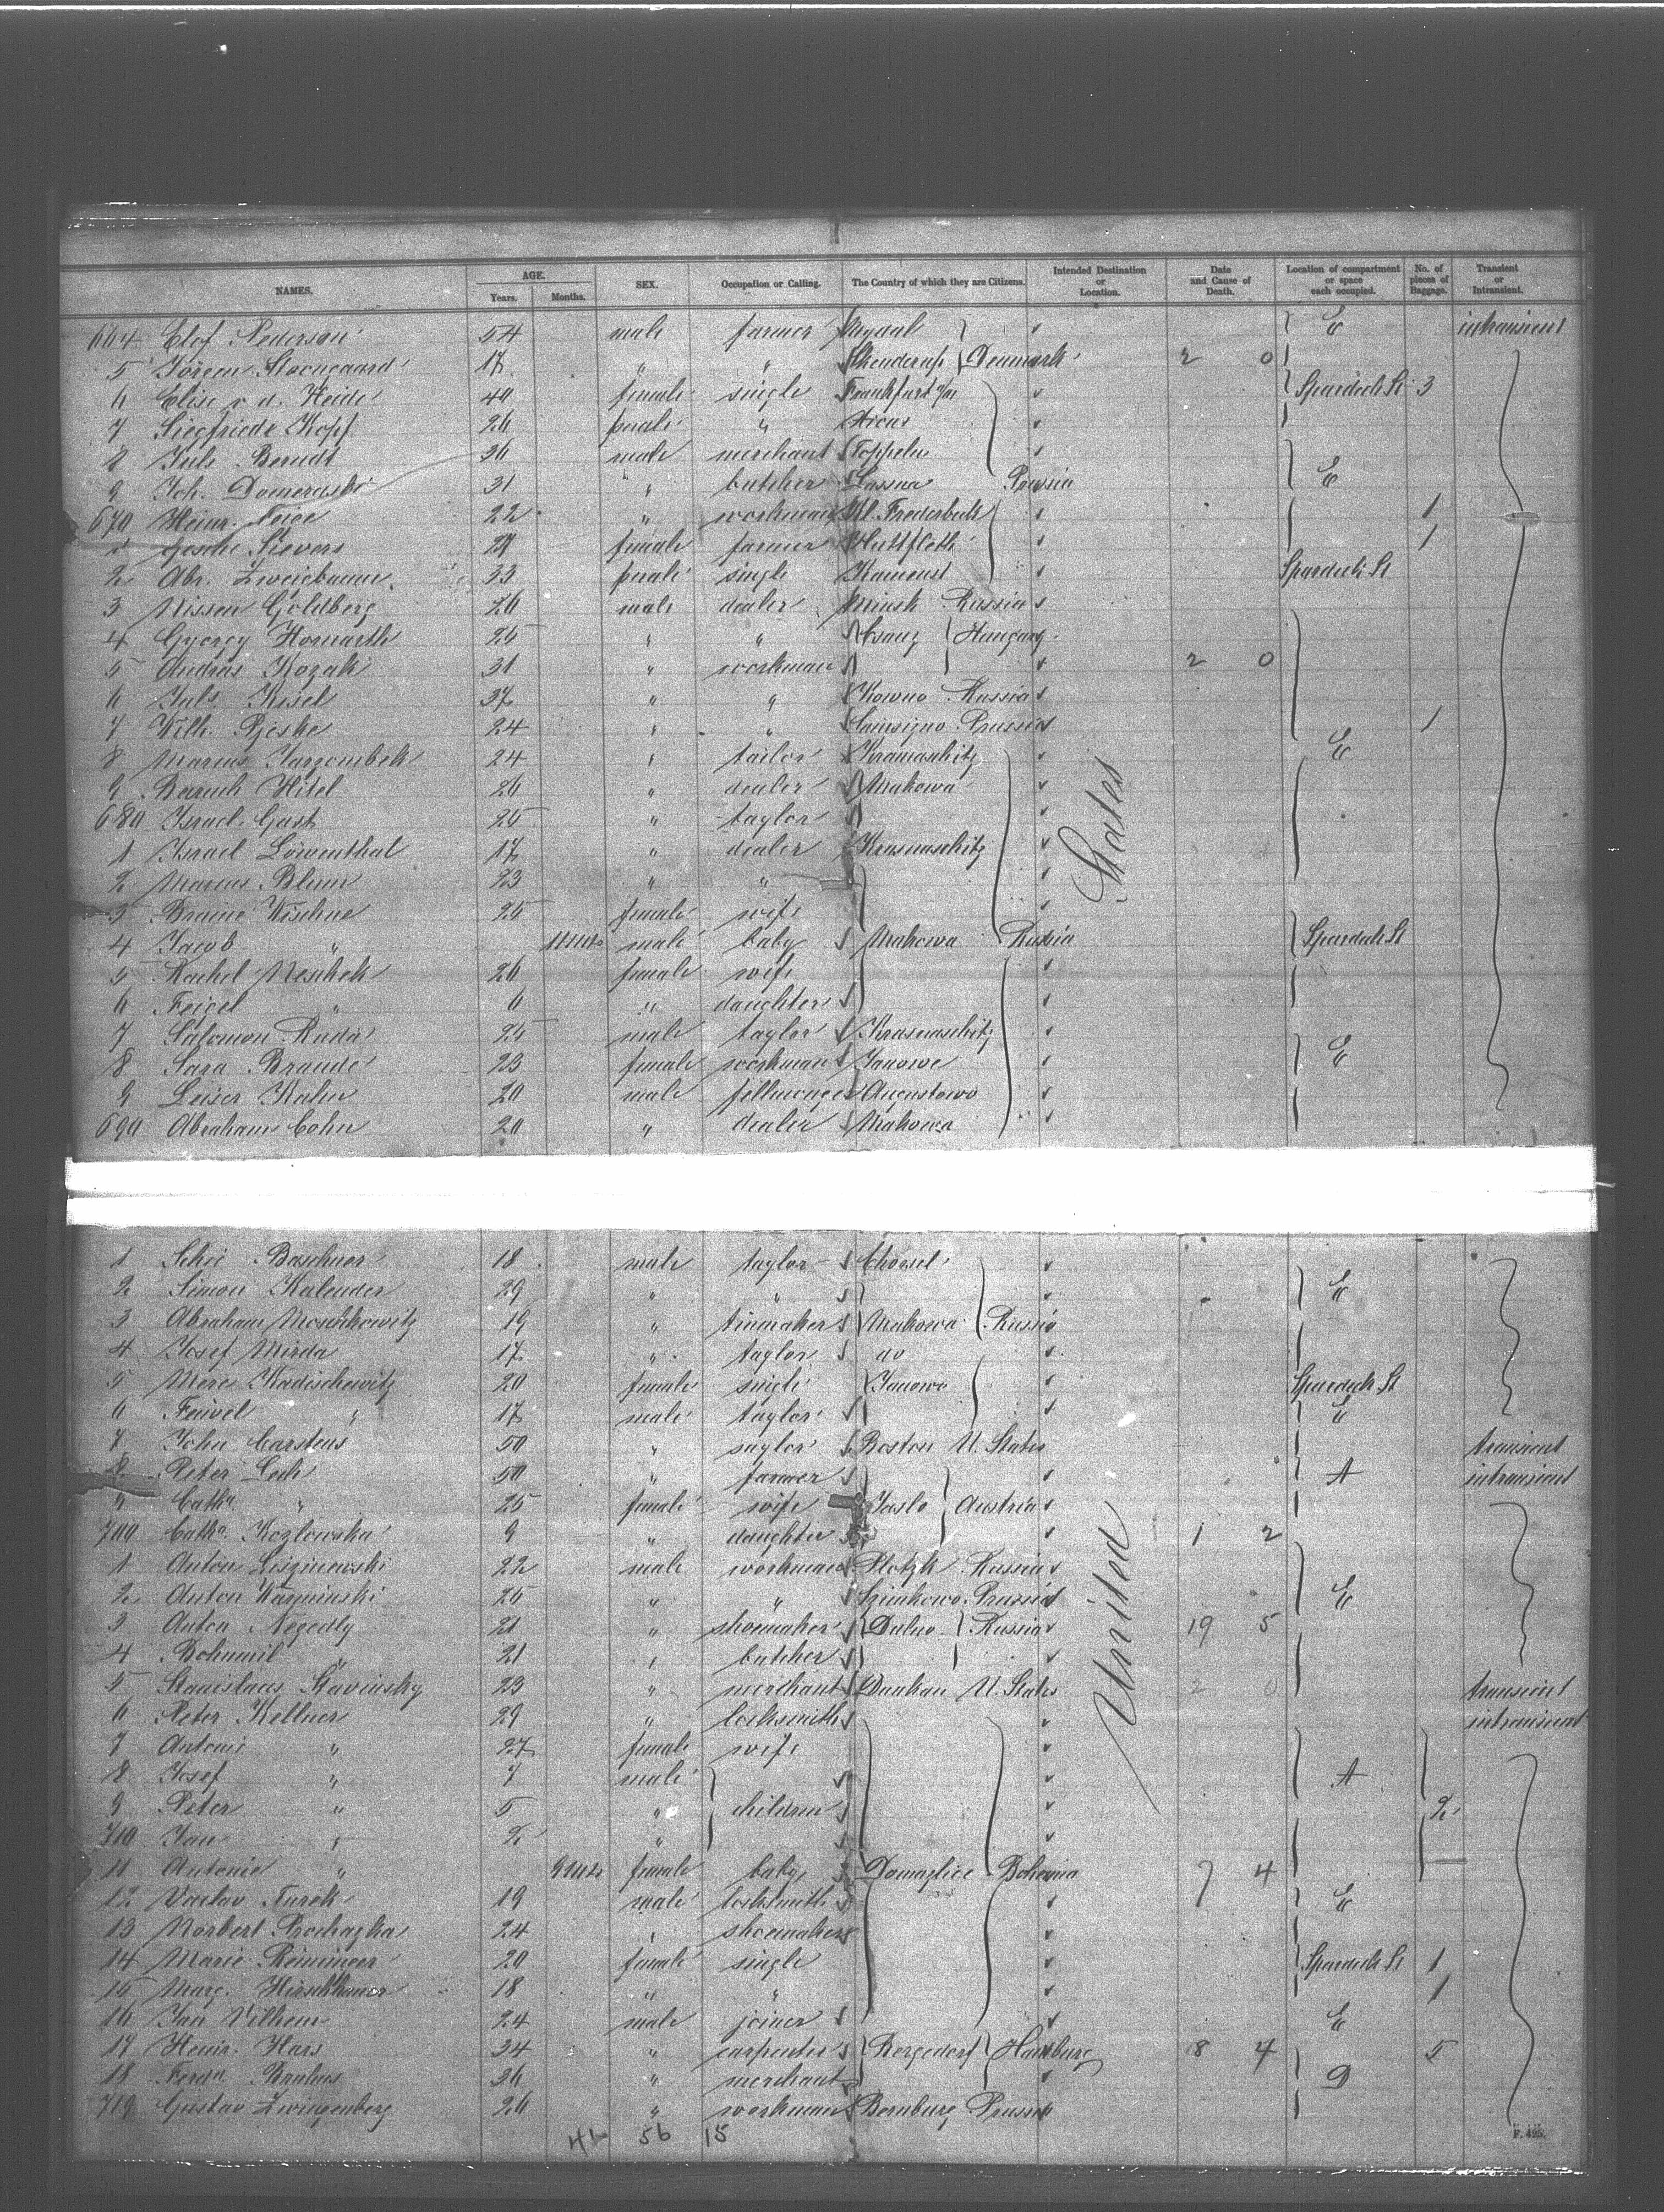 NAMES. AGE. Years. Months. SEX. Occupation or Calling. The Country of which they are Citizens. Intended Destination or Location. Date and Cause of Death. Location of compartment or space each occupied. No. of pieces of Baggage. Transient or Intransient.
664 Elof Pederson 54 male farmer Mygdal } E intransient
5 Jörgen 17 " " } Denmark 2 0
6 Elise v. d. Heide 40 female single Frankfurt a/m Spardeck St 3
7 Siegfriede Kopf 26 female "
8 Juls Berndt 36 male merchant Toppeln
9 Joh. Domeraski 31 " butcher Lassna Prussia E
670 Heinr. Feige 22 " workman Kl. Frederbeck 1
1 Gesche Sievers 29 female farmer Huttfleth 1
2 Abr. Zweigbaum 33 female single Spardeck St
3 Nissen Goldberg 26 male dealer Minsk Russia
4 György Horvarth 25 " " Hungary
5 Andras Kozak 31 " workman 2 0
6 Juls Kisel 37 " " Kowno Russia
7 Wilh. Pjeske 24 " " Prussia 1
8 Marcus Jarzombek 24 " tailor Krasnaschitz E
9 Baruch Hitel 26 " dealer Makowa
680 Israel Gast 25 " taylor
1 Israel Löwenthal 17 " dealer Krasnaschitz
2 Marcus Blum 23 " "
3 Braine Wischne 25 female wife
4 Jacob " 11 Mts male baby Makowa Russia Spardeck St
5 Rachel Meschek 26 female wife
6 Feigel " 6 " daughter
7 Salomon Ruda 25 male taylor Krasnaschitz
8 Sara Braude 23 female workman Janowe E
9 Leiser Kahn 20 male fellmonger Augustowo
690 Abraham Cohn 20 " dealer Makowa
States
1 Baschner 18 male taylor Chorsel
2 Simon Kalender 29 " " E
3 Abraham Moschkowitz 19 " tinmaker Makowa Russia
4 Josef Mirda 17 " taylor do
5 Mere Kadischewitz 20 female single Janowe Spardeck St
6 Feivel " 17 male taylor E
7 John Carstens 50 " saylor Boston U. States transient
8 Peter Lech 50 " farmer A intransient
9 Catha " 25 female wife Jaslo Austria
700 Catha Kozlowska 9 " daughter 1 2
1 Anton Lisziewski 22 male workman Plotzk Russia
2 Anton Kazminski 25 " " Prussia E
3 Anton Negedly 21 " shoemaker Dubno Russia 19 5
4 Bohumil " 21 " butcher
5 Stanislaus Stavinsky 23 " merchant U. States 2 0 transient
6 Peter Kellner 29 " locksmith intransient
7 Antoni " 27 female wife
8 Josef " 7 male A
9 Peter " 5 " children 2
710 Jan " 2 "
11 Antonie " 9 Mts female baby Domazlice Bohemia 7 4
12 Vaclav Turek 19 male locksmith E
13 Norbert Prochazka 24 " shoemaker
14 Marie Reininger 20 female single Spardeck St 1
15 Marg. 18 " " 1
16 Jan Vilhem 24 male joiner E
17 Heinr. Hars 34 " carpenter Bergedorf Hamburg 8 4 5
18 Ferdn Brahns 26 " merchant D
719 Gustav Zwingenberg 26 " workman Bernburg Prussia
United
41 56 15
F. 425.